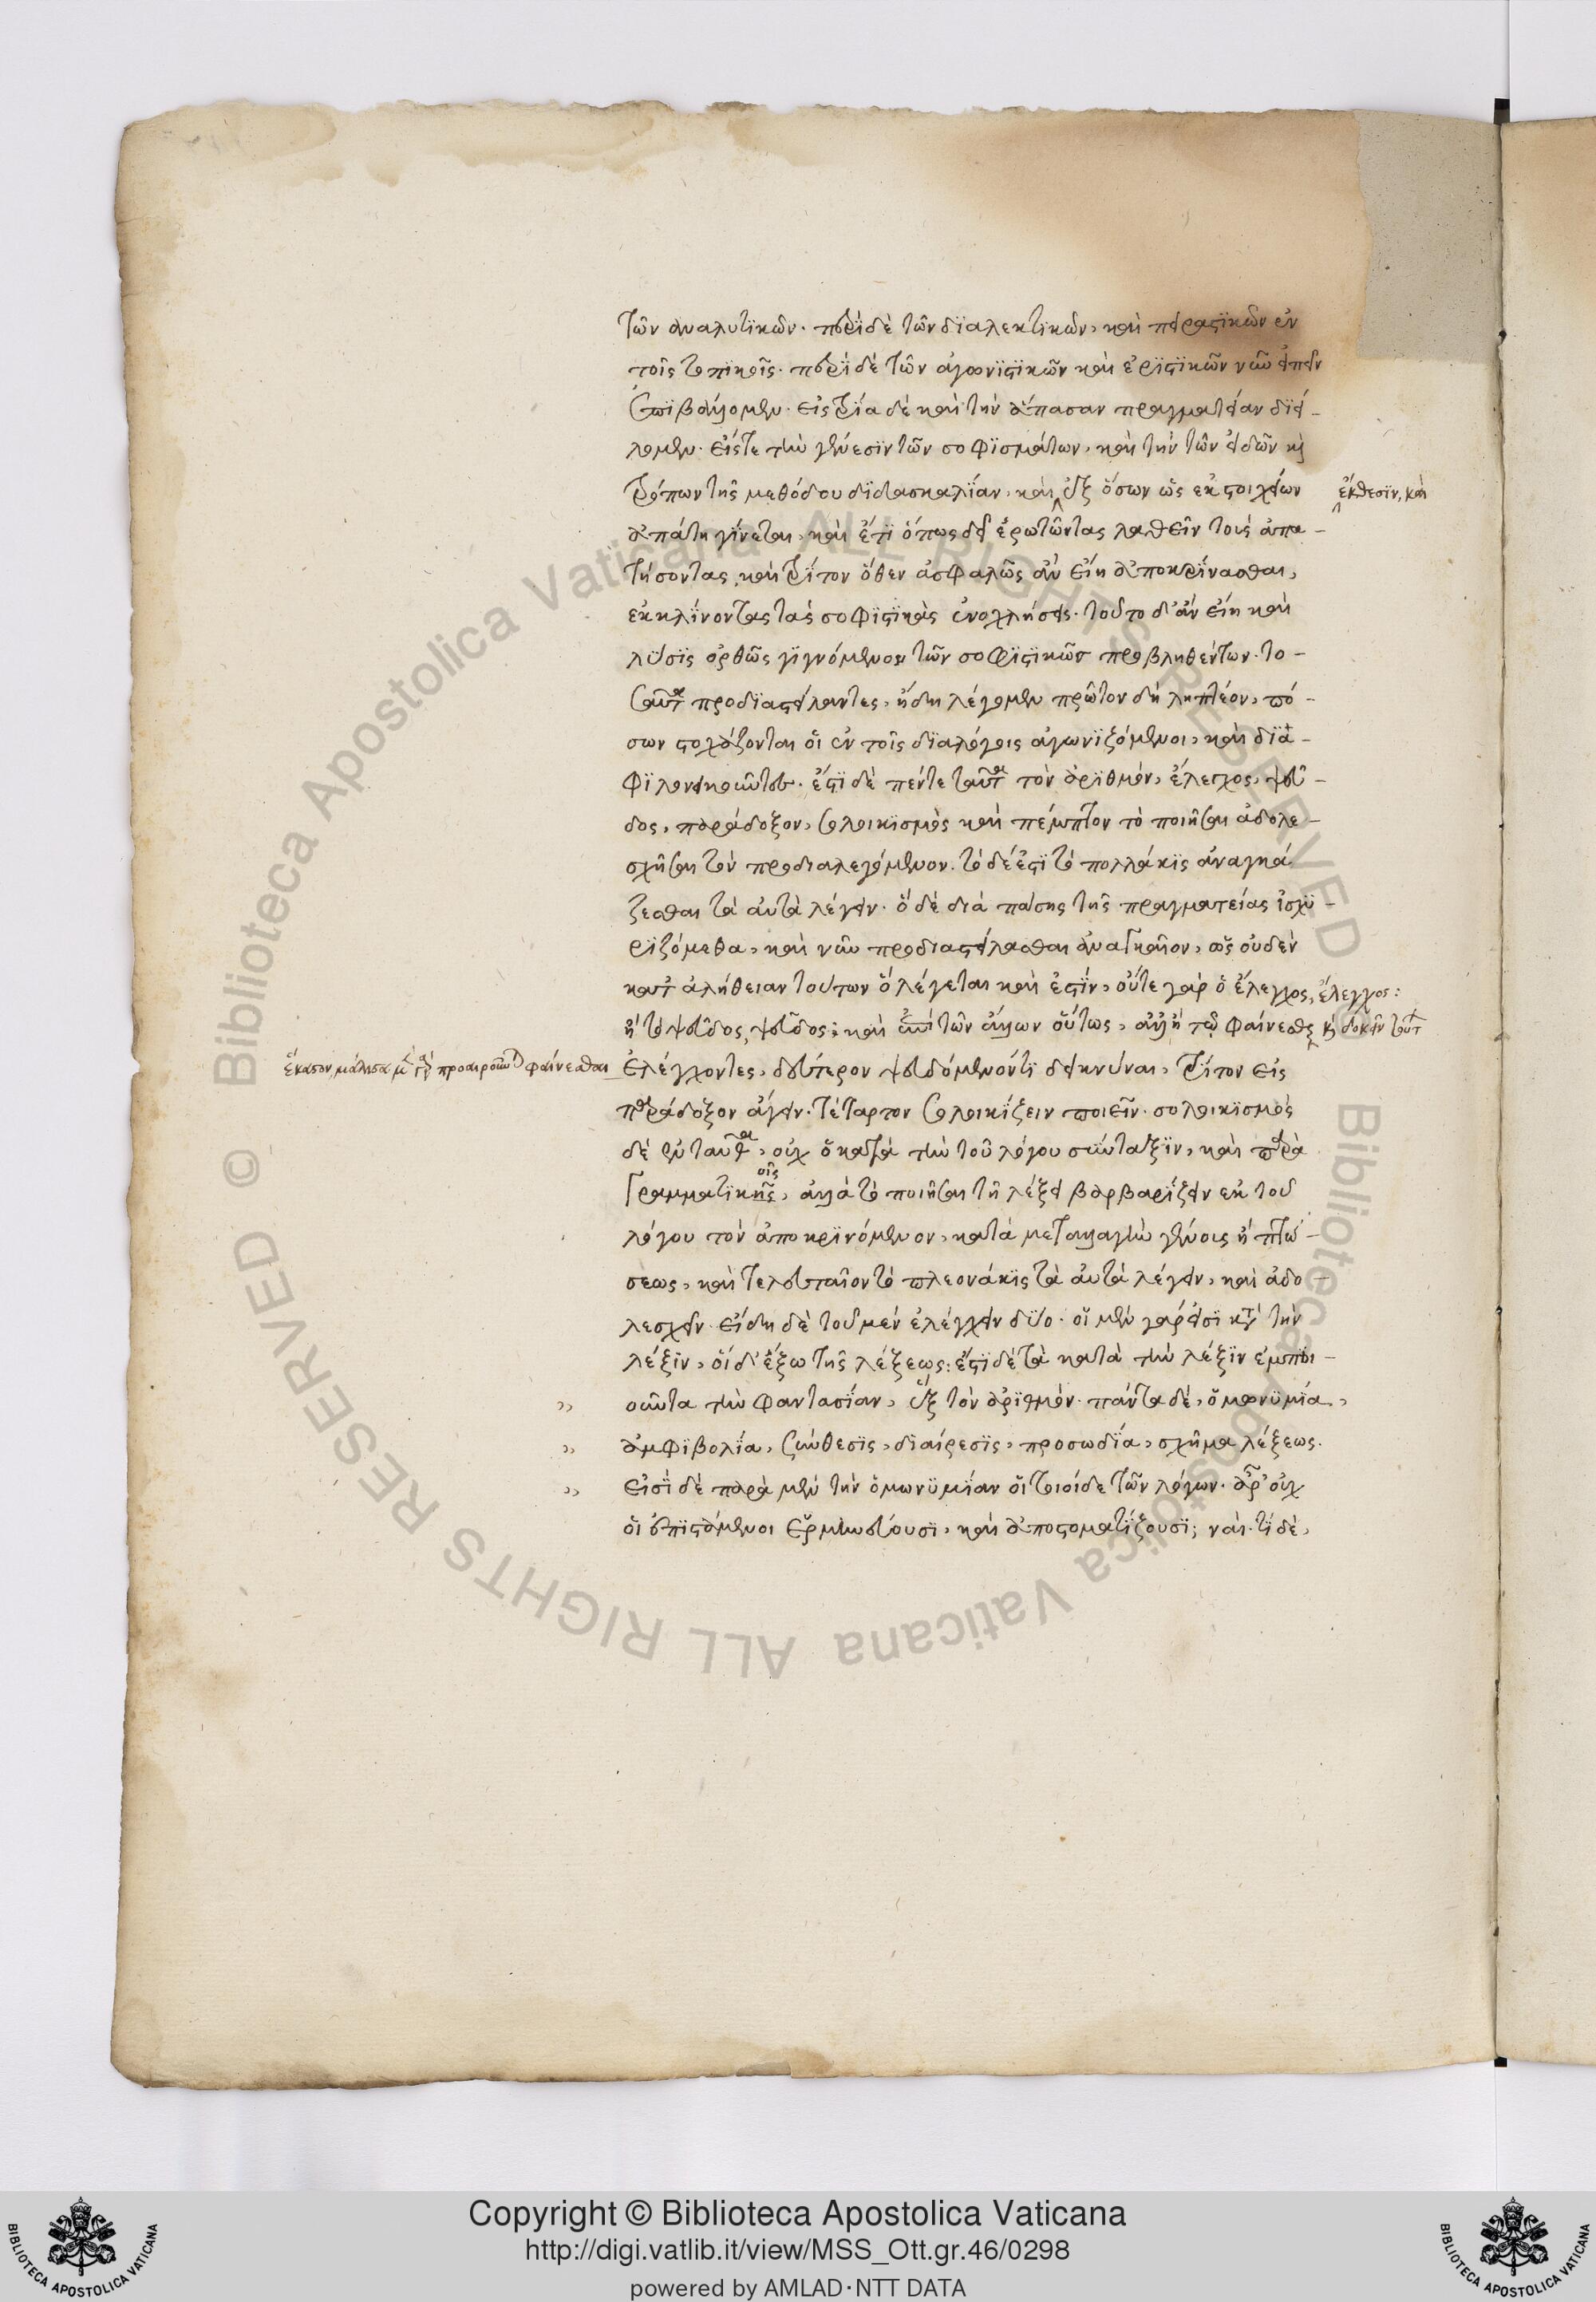 τῶν ἀναλυτϊκῶν. περὶ δὲ τῶν δϊαλεκτϊκῶν, καὶ πειραστϊκῶν ἐν
τοῖς τοπϊκοῖς. περὶ δὲ τῶν ἀγωνϊστϊκῶν καὶ ἐρϊστϊκῶν νῦν εἰπεῖν
ἐπϊβάλλομεν. εἰς τρία δὲ καὶ τὴν ἅπασαν πραγματείαν δϊεί-
λομεν. εἴς τε τὴν γένεσϊν τῶν σοφϊσμάτων, καὶ τὴν τῶν εἰδῶν κὶ
τρόπων τῆς μεθόδου δϊδασκαλΐαν, καὶ ἐξ ὅσων ὡς ἐκ στοιχείων
ἔκθεσϊν, καὶ
ἀπάτη γίνεται, καὶ ἔτϊ ὅπως δεῖ ἐρωτῶντας λαθεῖν τοὺς ἀπα-
τήσοντας, καὶ τρίτον ὅθεν ἀσφαλῶς ἂν εἴη ἀποκρΐνασθαι,
ἐκκλΐνοντας τὰς σοφϊστϊκὰς ἐνοχλήσεις. τοῦτο δ' ἂν εἴη καὶ
λύσϊς ὀρθῶς γϊγνόμενον τῶν σοφϊστϊκῶς προβληθέντων. το-
σαῦτα προδϊαστείλαντες, ἤδη λέγομεν πρῶτον δὴ ληπτέον, πό-
σων στοχάζονται οἱ ἐν τοῖς δϊαλόγοις ἀγωνϊζόμενοι, καὶ δϊα-
φϊλονεικοῦντες. ἔστϊ δὲ πέντε ταῦτα τὸν ἀρϊθμόν, ἔλεγχος, ψεῦ-
δος, παράδοξον, σολοικϊσμὸς καὶ πέμπτον τὸ ποιῆσαι ἀδολε-
σχῆσαι τὸν προδιαλεγόμενον. τὸ δέ ἐστϊ τὸ πολλάκϊς ἀναγκά
ζεσθαι τὰ αὐτὰ λέγειν. ὃ δὲ διὰ πάσης τῆς πραγματείας ἰσχυ-
ρϊζόμεθα, καὶ νῦν προδιαστείλασθαι ἀναγκαῖον, ὡς οὐδὲν
κατ' ἀλήθειαν τούτων ὃ λέγεται καὶ ἐστΐν, οὔτε γὰρ ὁ ἔλεγχος, ἔλεγχος:
ἢ τὸ ψεῦδος, ψεῦδος: καὶ ἐπὶ τῶν ἄλλων οὕτως, ἀλλ' ἢ τῷ φαίνεσθαι κὶ δοκεῖν τοῦτ
ἕκαστον, μάλιστα μὲν γὰρ προαιροῦνται φαίνεσθαι
ἐλέγχοντες, δεύτερον ψευδόμενόν τϊ δεικνύναι, τρίτον εἰς
παράδοξον ἄγειν. τέταρτον σολοικΐζειν ποιεῖν. σολοικϊσμὸς
δὲ ἐν ταῦτα, οὐχ ὁ κατὰ τὴν τοῦ λόγου σύνταξϊν, καὶ παρὰ
οῖς
γραμματϊκῆς, ἀλλὰ τὸ ποιῆσαι τῆ λέξει βαρβαρΐζειν ἐκ τοῦ
λόγου τὸν ἀποκρϊνόμενον, κατὰ μεταλλαγὴν γένους ἢ πτώ-
σεως, καὶ τελευταῖον τὸ πλεονάκϊς τὰ αὐτὰ λέγειν, καὶ ἀδο-
λεσχεῖν. εἴδη δὲ τοῦ μὲν ἐλέγχειν δύο. οἱ μὲν γάρ εἰσϊ κατὰ τὴν
λέξϊν, οἱ δ' ἔξω τῆς λέξεως: ἔστϊ δὲ τὰ κατὰ τὴν λέξϊν ἐμποι-
οῦντα τὴν φαντασΐαν, ἓξ τὸν ἀρϊθμόν. πάντα δὲ, ὁμωνϋμία,
ἀμφϊβολΐα, σύνθεσϊς, δϊαίρεσϊς, προσωδΐα, σχῆμα λέξεως.
εἰσῒ δὲ παρὰ μὲν τὴν ὁμωνϋμΐαν οἱ τοιοίδε τῶν λόγων. ἆρ' οὐχ
οἱ ἐπϊστάμενοι ἑρμηνεύουσϊ, καὶ ἀποστοματΐζουσϊ; ναί. τί δὲ,
Copyright © Biblioteca Apostolica Vaticana
http://digi.vatlib.it/view/MSS_Ott.gr.46/0298
powered by AMLAD·NTT DATA